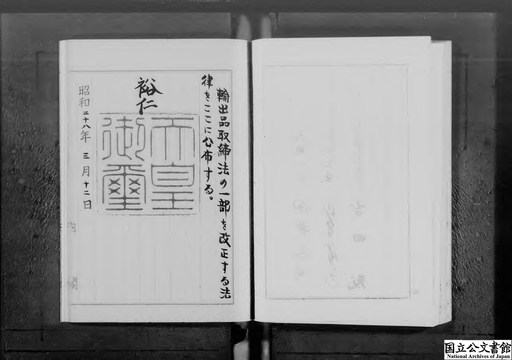 輸出品取締法の一部を改正する法
律をここに公布する。
裕仁
天皇
御璽
昭和二十八年三月十二日
国立公文書館
National Archives of Japan